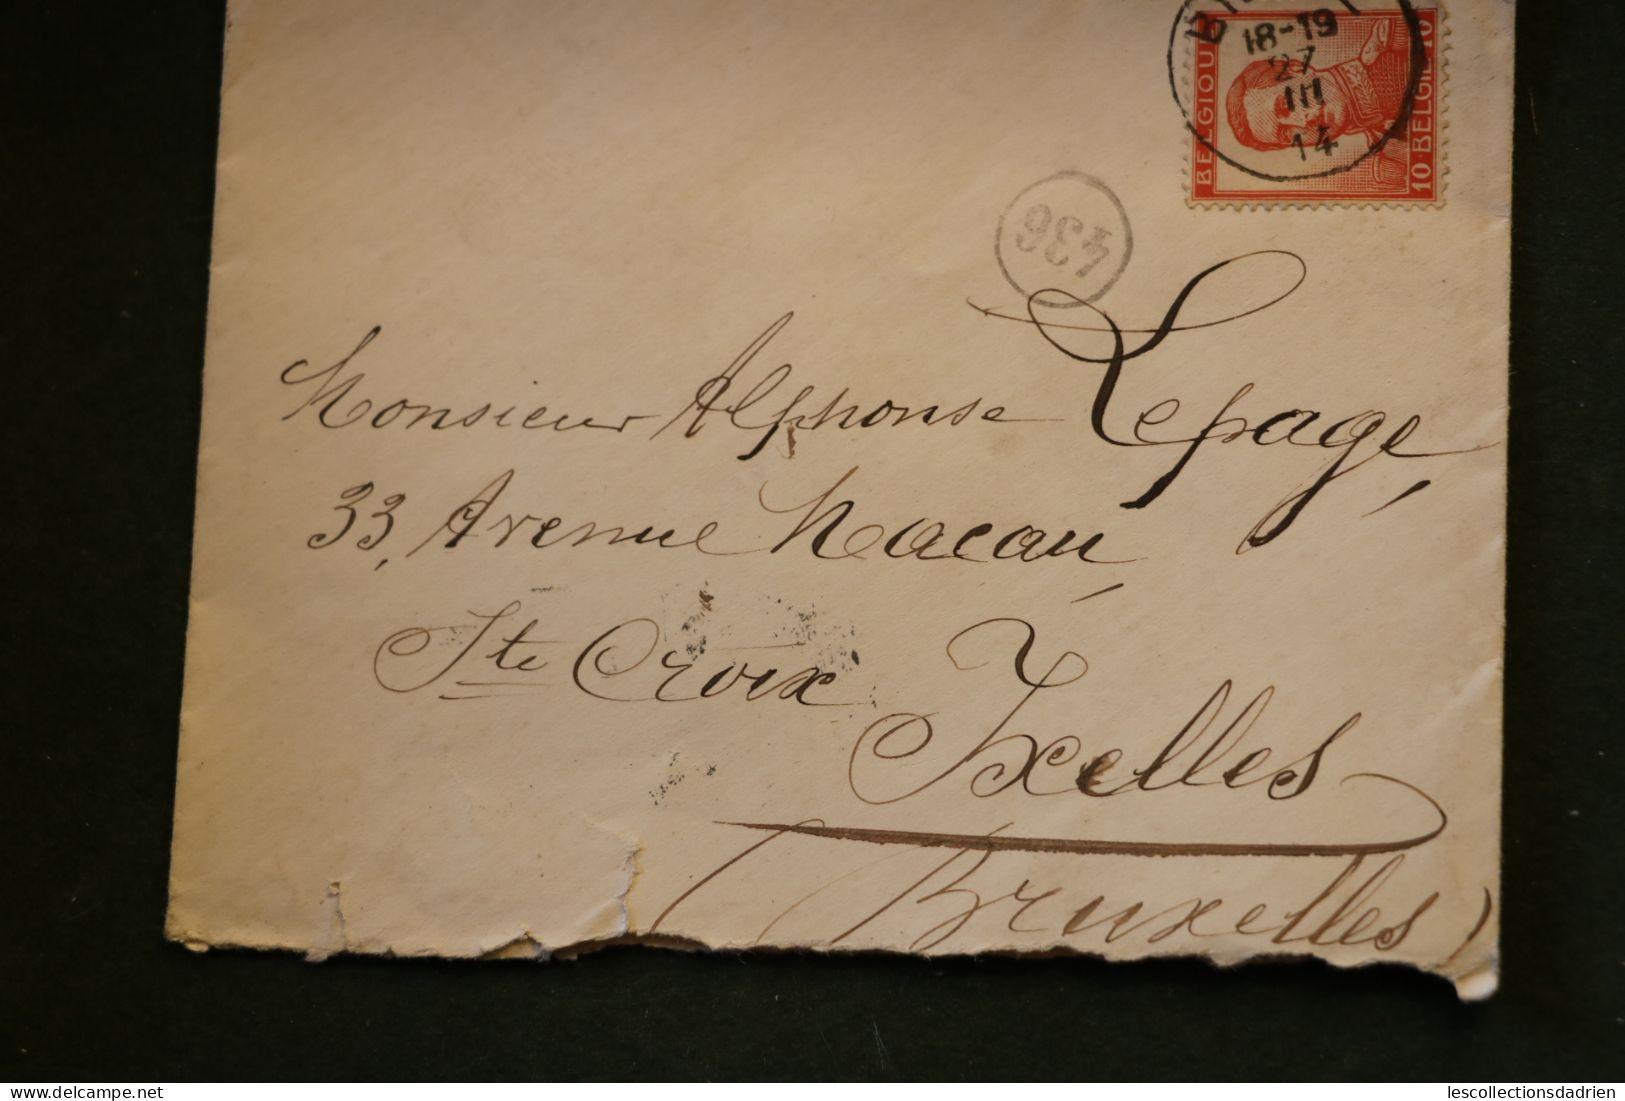 18-19
27
III
14
BELGIQUE 10
10 · BELGIË 10
436
Monsieur Alphonse Lepage,
33, Avenue Macau,
Ste Croix Ixelles
(Bruxelles)
Delcampe.net
lescollectionsdadrien